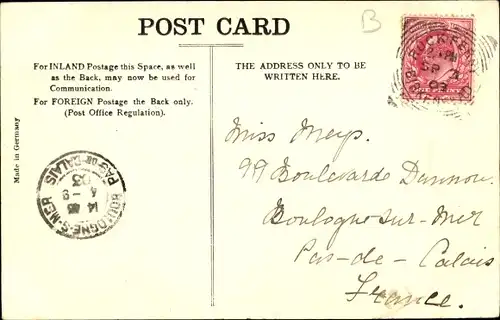 POST CARD
B
For INLAND Postage this Space, as well
as the Back, may now be used for
Communication.
For FOREIGN Postage the Back only.
(Post Office Regulation).
THE ADDRESS ONLY TO BE
WRITTEN HERE.
Made in Germany
ONE PENNY
BOULOGNE-S-MER
PAS-DE-CALAIS
03
Miss Meys.
99 Boulevarde
Boulogne-sur-Mer
Pas-de-Calais
France.